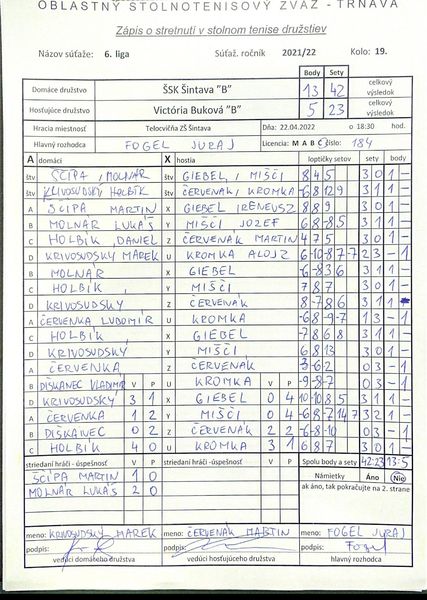 OBLASTNÝ STOLNOTENISOVÝ ZVÄZ - TRNAVA
Zápis o stretnutí v stolnom tenise družstiev
Názov súťaže: 6. liga Súťaž. ročník 2021/22 Kolo: 19.
Body Sety
Domáce družstvo ŠSK Šintava "B" 13 42 celkový výsledok
Hosťujúce družstvo Victória Buková "B" 5 23 celkový výsledok
Hracia miestnosť Telocvičňa ZŠ Šintava Dňa: 22.04.2022 o 18:30 hod.
Hlavný rozhodca FOGEL JURAJ Licencia: M A B C číslo: 184
A domáci X hostia loptičky setov sety body
štv ŠČIPA, MOLNÁR štv GIEBEL, MIŠČI 8 4 5 3 0 1 -
štv KRIVOSUDSKÝ HOLBÍK štv ČERVENAK, KROMKA -6 8 12 9 3 1 1 -
A ŠČIPA MARTIN X GIEBEL IRENEUSZ 8 8 9 3 0 1 -
B MOLNÁR LUKÁŠ Y MIŠČI JOZEF 6 -8 8 5 3 1 1 -
C HOLBÍK, DANIEL Z ČERVENÁK MARTIN 4 7 5 3 0 1 -
D KRIVOSUDSKÝ MAREK U KROMKA ALOJZ 6 -10 -8 7 -7 2 3 - 1
B MOLNÁR X GIEBEL 6 -8 3 6 3 1 1 -
C HOLBÍK, Y MIŠČI 7 8 7 3 0 1 -
D KRIVOSUDSKÝ Z ČERVENÁK 8 -7 8 6 3 1 1
A ČERVENKA ĽUBOMÍR U KROMKA -6 8 -9 -7 1 3 - 1
C HOLBÍK, X GIEBEL -7 8 6 8 3 1 1 -
D KRIVOSUDSKÝ Y MIŠČI 6 8 13 3 0 1 -
A ČERVENKA Z ČERVENÁK 0 3 - 1
B DIŠKANEC VLADIMÍR V P U KROMKA V P -9 -8 -7 0 3 - 1
D KRIVOSUDSKÝ 3 1 X GIEBEL 0 4 10 -10 8 5 3 1 1 -
A ČERVENKA 1 2 Y MIŠČI 0 4 -6 8 -7 14 7 3 2 1 -
B DIŠKANEC 0 2 Z ČERVENÁK 2 2 -6 -8 -10 0 3 - 1
C HOLBÍK 4 0 U KROMKA 3 1 6 8 7 3 0 1 -
striedaní hráči - úspešnosť V P striedaní hráči - úspešnosť V P Spolu body a sety 42:23 13:5
ŠČIPA MARTIN 1 0 Námietky Áno Nie
MOLNÁR LUKÁŠ 2 0 ak áno, tak pokračujte na 2. strane
meno: KRIVOSUDSKÝ MAREK meno: ČERVENÁK MARTIN meno: FOGEL JURAJ
podpis: podpis: podpis: Fogel
vedúci domáceho družstva vedúci hosťujúceho družstva hlavný rozhodca